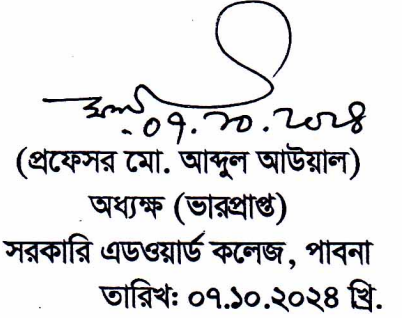 ০৭.১০.২০২৪
(প্রফেসর মো. আব্দুল আউয়াল)
অধ্যক্ষ (ভারপ্রাপ্ত)
সরকারি এডওয়ার্ড কলেজ, পাবনা
তারিখঃ ০৭.১০.২০২৪ খ্রি.